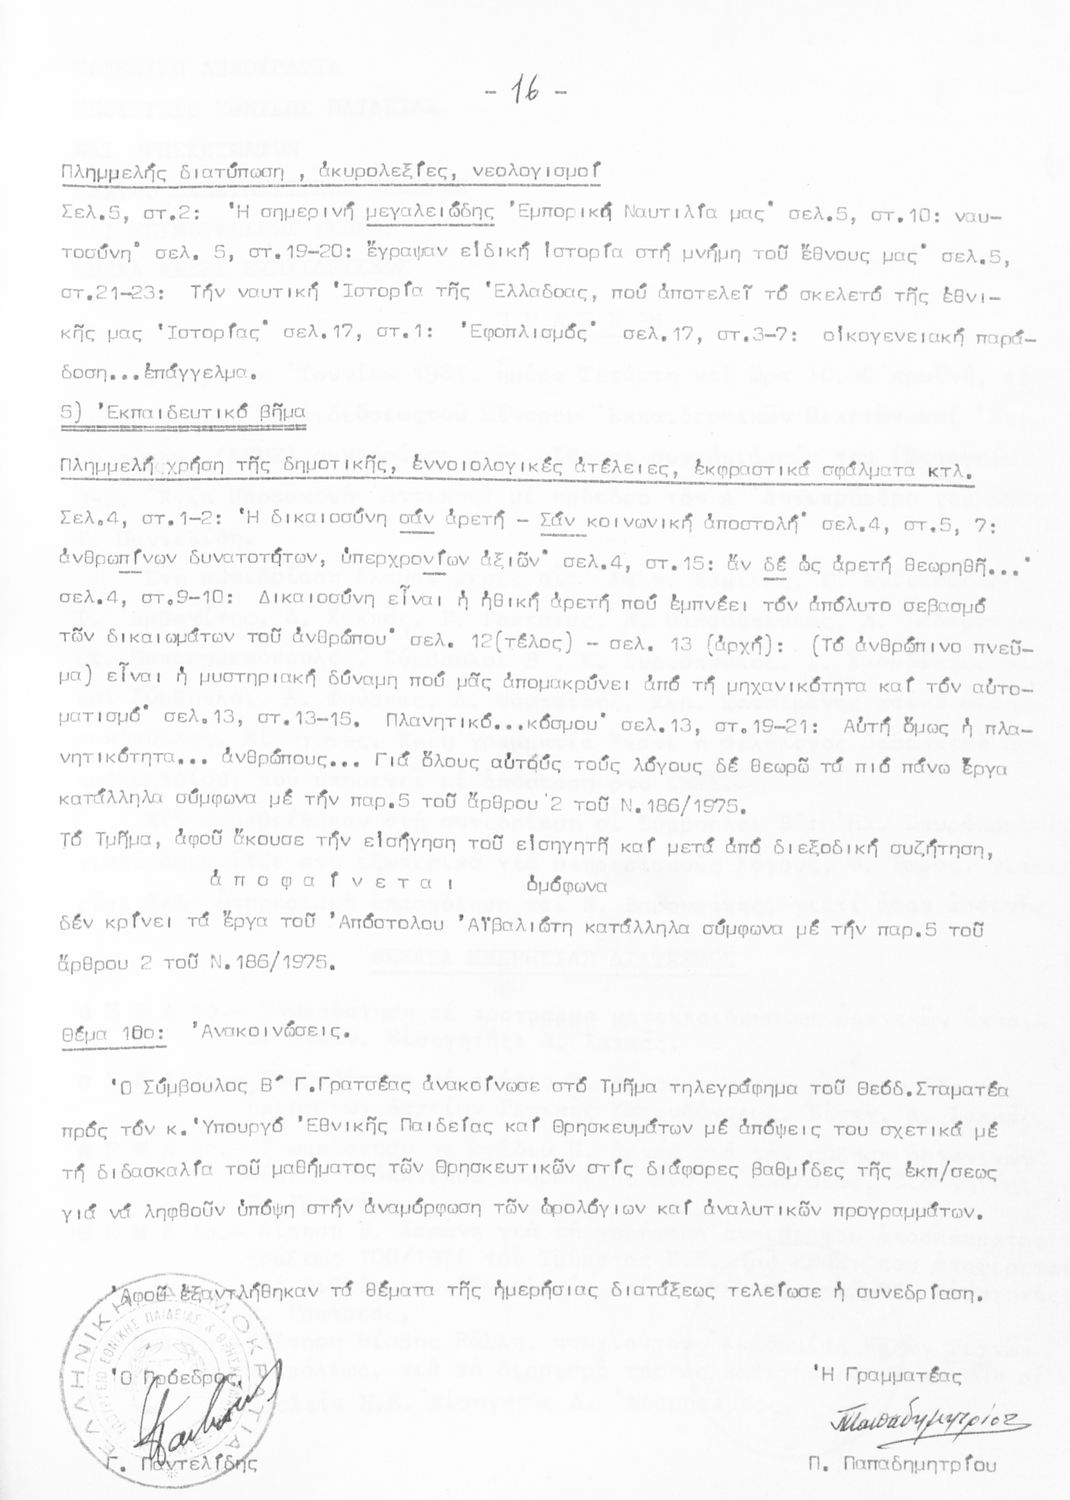 - 16 -
Πλημμελής διατύπωση , ἀκυρολεξίες, νεολογισμοί
Σελ.5, στ.2: Ἡ σημερινή μεγαλειώδης Ἐμπορική Ναυτιλία μας· σελ.5, στ.10: ναυ-
τοσύνη· σελ. 5, στ.19-20: ἔγραψαν εἰδική ἱστορία στή μνήμη τοῦ ἔθνους μας· σελ.5,
στ.21-23: Τήν ναυτική Ἱστορία τῆς Ἑλλαδοας, πού ἀποτελεῖ τό σκελετό τῆς ἐθνι-
κῆς μας Ἱστορίας· σελ.17, στ.1: Ἐφοπλισμός· σελ.17, στ.3-7: οἰκογενειακή παρά-
δοση...ἐπάγγελμα.
5) Ἐκπαιδευτικό βῆμα
Πλημμελή χρήση τῆς δημοτικῆς, ἐννοιολογικές ἀτέλειες, ἐκφραστικά σφάλματα κτλ.
Σελ.4, στ.1-2: Ἡ δικαιοσύνη σάν ἀρετή - Σάν κοινωνική ἀποστολή· σελ.4, στ.5, 7:
ἀνθρωπίνων δυνατοτήτων, ὑπερχρονίων ἀξιῶν· σελ.4, στ.15: ἄν δέ ὡς ἀρετή θεωρηθῆ...·
σελ.4, στ.9-10: Δικαιοσύνη εἶναι ἡ ἠθική ἀρετή πού ἐμπνέει τόν ἀπόλυτο σεβασμό
τῶν δικαιωμάτων τοῦ ἀνθρώπου· σελ. 12(τέλος) - σελ. 13 (ἀρχή): (Τό ἀνθρώπινο πνεῦ-
μα) εἶναι ἡ μυστηριακή δύναμη πού μᾶς ἀπομακρύνει ἀπό τή μηχανικότητα καί τόν αὐτο-
ματισμό· σελ.13, στ.13-15. Πλανητικό...κόσμου· σελ.13, στ.19-21: Αὐτή ὅμως ἡ πλα-
νητικότητα... ἀνθρώπους... Γιά ὅλους αὐτούς τούς λόγους δέ θεωρῶ τά πιό πάνω ἔργα
κατάλληλα σύμφωνα μέ τήν παρ.5 τοῦ ἄρθρου 2 τοῦ Ν.186/1975.
Τό Τμῆμα, ἀφοῦ ἄκουσε τήν εἰσήγηση τοῦ εἰσηγητῆ καί μετά ἀπό διεξοδική συζήτηση,
ἀ π ο φ α ί ν ε τ α ι ὁμόφωνα
δέν κρίνει τά ἔργα τοῦ Ἀπόστολου Ἀϊβαλιώτη κατάλληλα σύμφωνα μέ τήν παρ.5 τοῦ
ἄρθρου 2 τοῦ Ν.186/1975.
Θέμα 10ο: Ἀνακοινώσεις.
Ὁ Σύμβουλος Β΄ Γ.Γρατσέας ἀνακοίνωσε στό Τμῆμα τηλεγράφημα τοῦ Θεόδ.Σταματέα
πρός τόν κ. Ὑπουργό Ἐθνικῆς Παιδείας καί Θρησκευμάτων μέ ἀπόψεις του σχετικά μέ
τή διδασκαλία τοῦ μαθήματος τῶν Θρησκευτικῶν στίς διάφορες βαθμίδες τῆς ἐκπ/σεως
γιά νά ληφθοῦν ὑπόψη στήν ἀναμόρφωση τῶν ὡρολόγιων καί ἀναλυτικῶν προγραμμάτων.
Ἀφοῦ ἐξαντλήθηκαν τά θέματα τῆς ἡμερήσιας διατάξεως τελείωσε ἡ συνεδρίαση.
ΕΛΛΗΝΙΚΗ ΔΗΜΟΚΡΑΤΙΑ
ΥΠΟΥΡΓΕΙΟ ΕΘΝΙΚΗΣ ΠΑΙΔΕΙΑΣ & ΘΡΗΣΚ
Ὁ Πρόεδρος Ἡ Γραμματέας
Παπαδημητρίου
Γ. Παντελίδης Π. Παπαδημητρίου